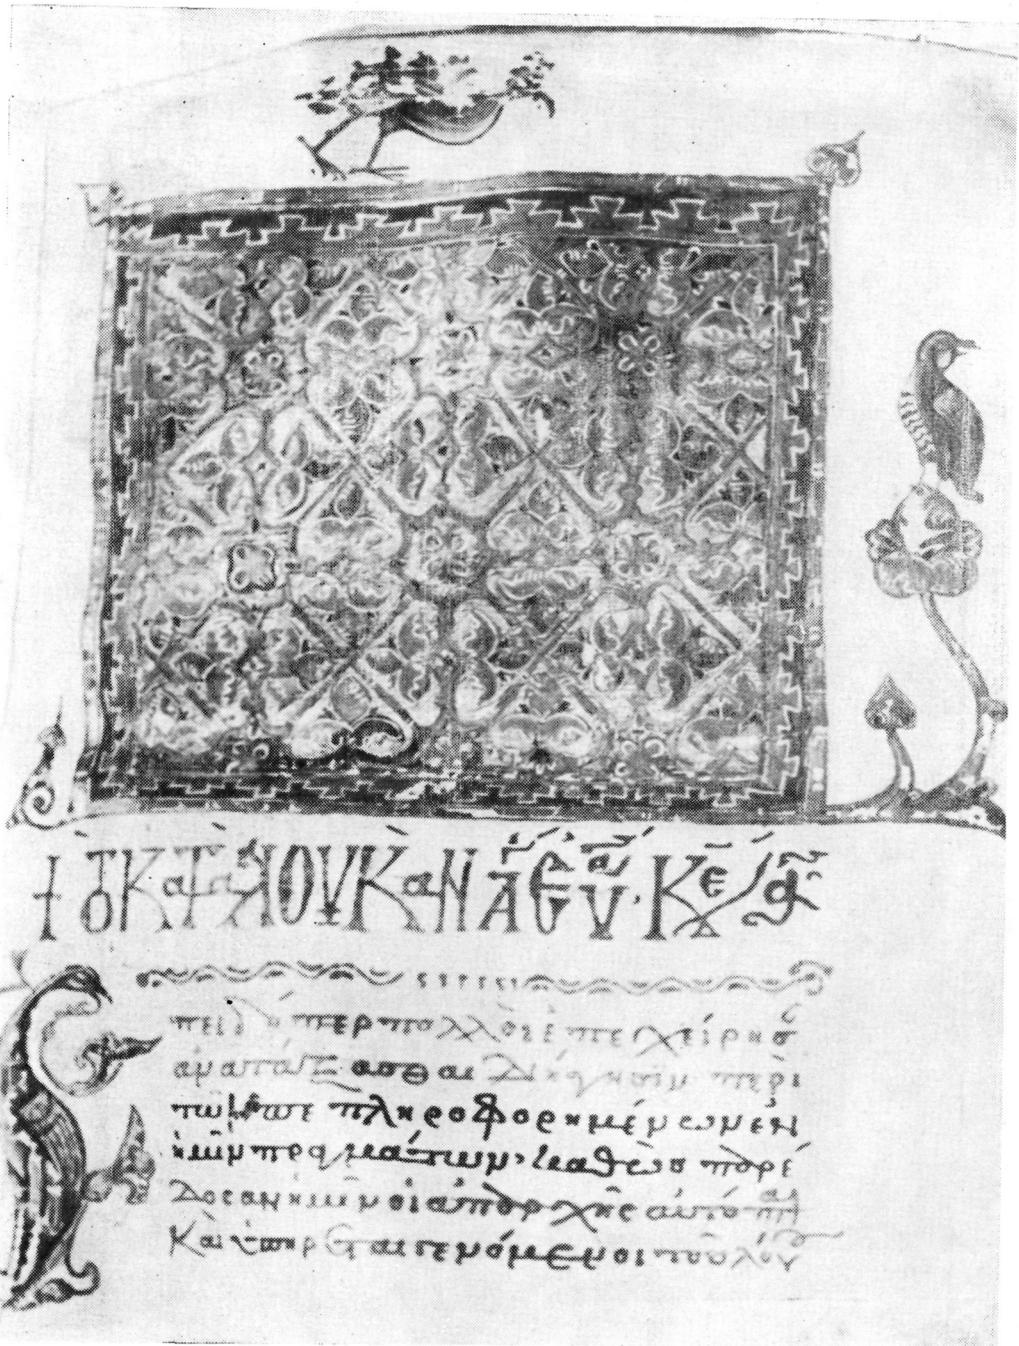 + Τὸ Κατὰ ΛΟΥΚὰΝ
Επειδήπερ πολλοὶ ἐπεχείρησ
ἀνατάξασθαι διήγησιν περὶ
τῶν πεπληροφορημένων ἐν
ἡμῖν πραγμάτων· καθὼς παρέ
δοσαν ἡμῖν οἱ ἀπαρχῆς αὐτόπται
Καὶ ὑπηρέται γενόμενοι τοῦ λόγου